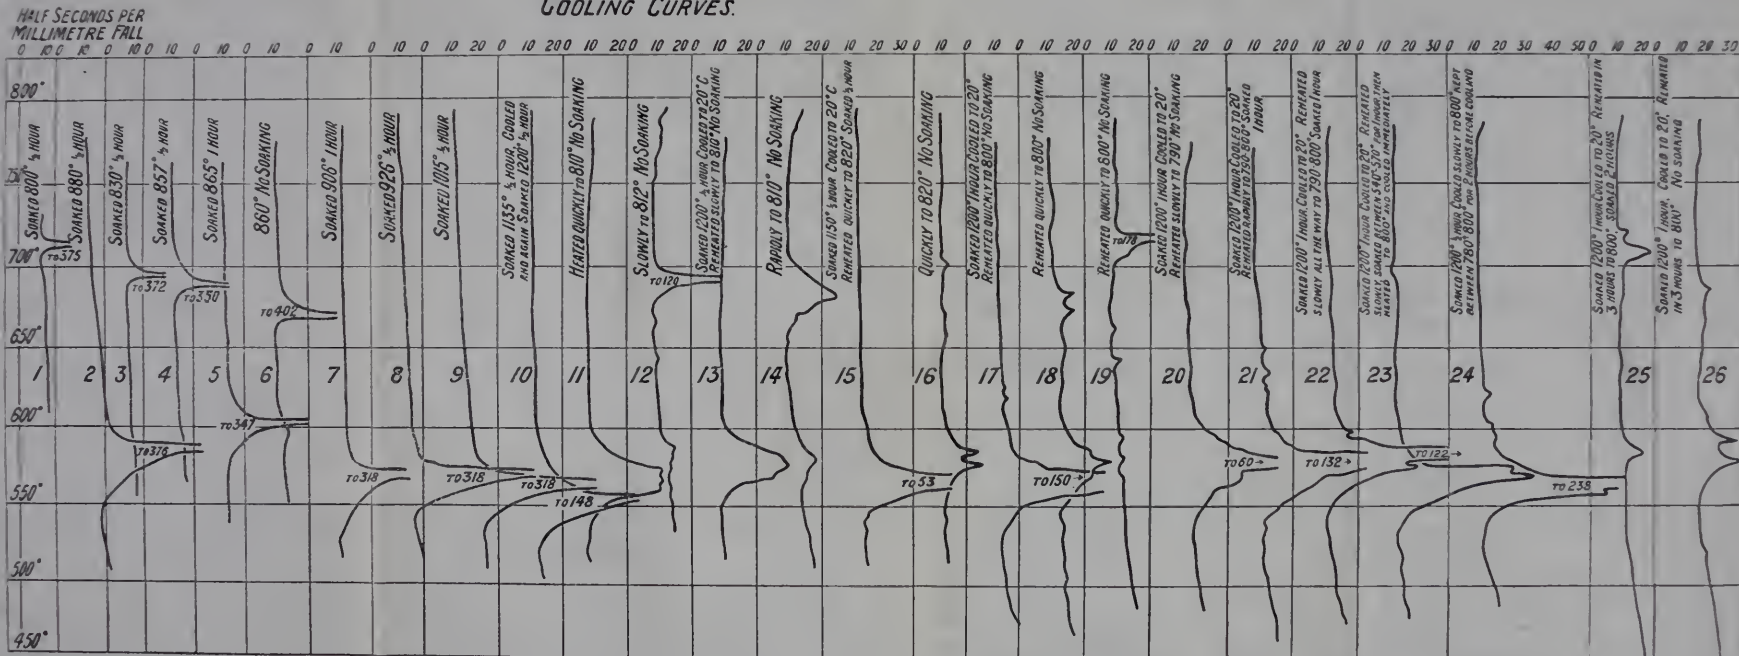 COOLING CURVES.
HALF SECONDS PER
MILLIMETRE FALL
0 10 0 10 0 10 0 10 0 10 0 10 0 10 0 10 20 0 10 20 0 10 20 0 10 20 0 10 20 0 10 20 30 0 10 0 10 0 10 20 0 10 20 0 10 20 0 10 20 0 10 20 0 10 20 30 0 10 20 30 40 50 0 10 20 0 10 20 30
800°
750°
700°
650°
600°
550°
500°
450°
SOAKED 800° ½ HOUR
SOAKED 880° ½ HOUR
SOAKED 830° ½ HOUR
SOAKED 857° ½ HOUR
SOAKED 865° 1 HOUR
860° NO SOAKING
SOAKED 906° 1 HOUR
SOAKED 926° ½ HOUR
SOAKED 1015° ½ HOUR
SOAKED 1135° ½ HOUR, COOLED
AND AGAIN SOAKED 1200° ½ HOUR
HEATED QUICKLY TO 810° NO SOAKING
SLOWLY TO 812° NO SOAKING
SOAKED 1200° ½ HOUR COOLED TO 20°C
REHEATED SLOWLY TO 810° NO SOAKING
RAPIDLY TO 810° NO SOAKING
SOAKED 1150° ½ HOUR COOLED TO 20°C
REHEATED QUICKLY TO 820° SOAKED ½ HOUR
QUICKLY TO 820° NO SOAKING
SOAKED 1200° 1 HOUR COOLED TO 20°
REHEATED QUICKLY TO 800° NO SOAKING
REHEATED QUICKLY TO 800° NO SOAKING
REHEATED QUICKLY TO 800° NO SOAKING
SOAKED 1200° 1 HOUR COOLED TO 20°
REHEATED SLOWLY TO 790° NO SOAKING
SOAKED 1200° 1 HOUR COOLED TO 20°
REHEATED RAPIDLY TO 790-800° SOAKED
1 HOUR
SOAKED 1200° 1 HOUR, COOLED TO 20° REHEATED
SLOWLY ALL THE WAY TO 790-800° SOAKED 1 HOUR
SOAKED 1200° 1 HOUR COOLED TO 20° REHEATED
SLOWLY, SOAKED BETWEEN 540°-570° FOR 1 HOUR, THEN
HEATED TO 800° AND COOLED IMMEDIATELY
SOAKED 1200° ½ HOUR COOLED SLOWLY TO 800° KEPT
BETWEEN 780° 800° FOR 2 HOURS BEFORE COOLING
SOAKED 1200° 1 HOUR COOLED TO 20° REHEATED IN
3 HOURS TO 800°. SOAKED 2 HOURS
SOAKED 1200° 1 HOUR, COOLED TO 20°, REHEATED
IN 3 HOURS TO 800° NO SOAKING
TO 375
TO 372
TO 350
TO 402
TO 120
TO 178
1 2 3 4 5 6 7 8 9 10 11 12 13 14 15 16 17 18 19 20 21 22 23 24 25 26
TO 347
TO 376
TO 318
TO 318
TO 318
TO 148
TO 53
TO 150→
TO 60→
TO 132→
TO 122→
TO 238